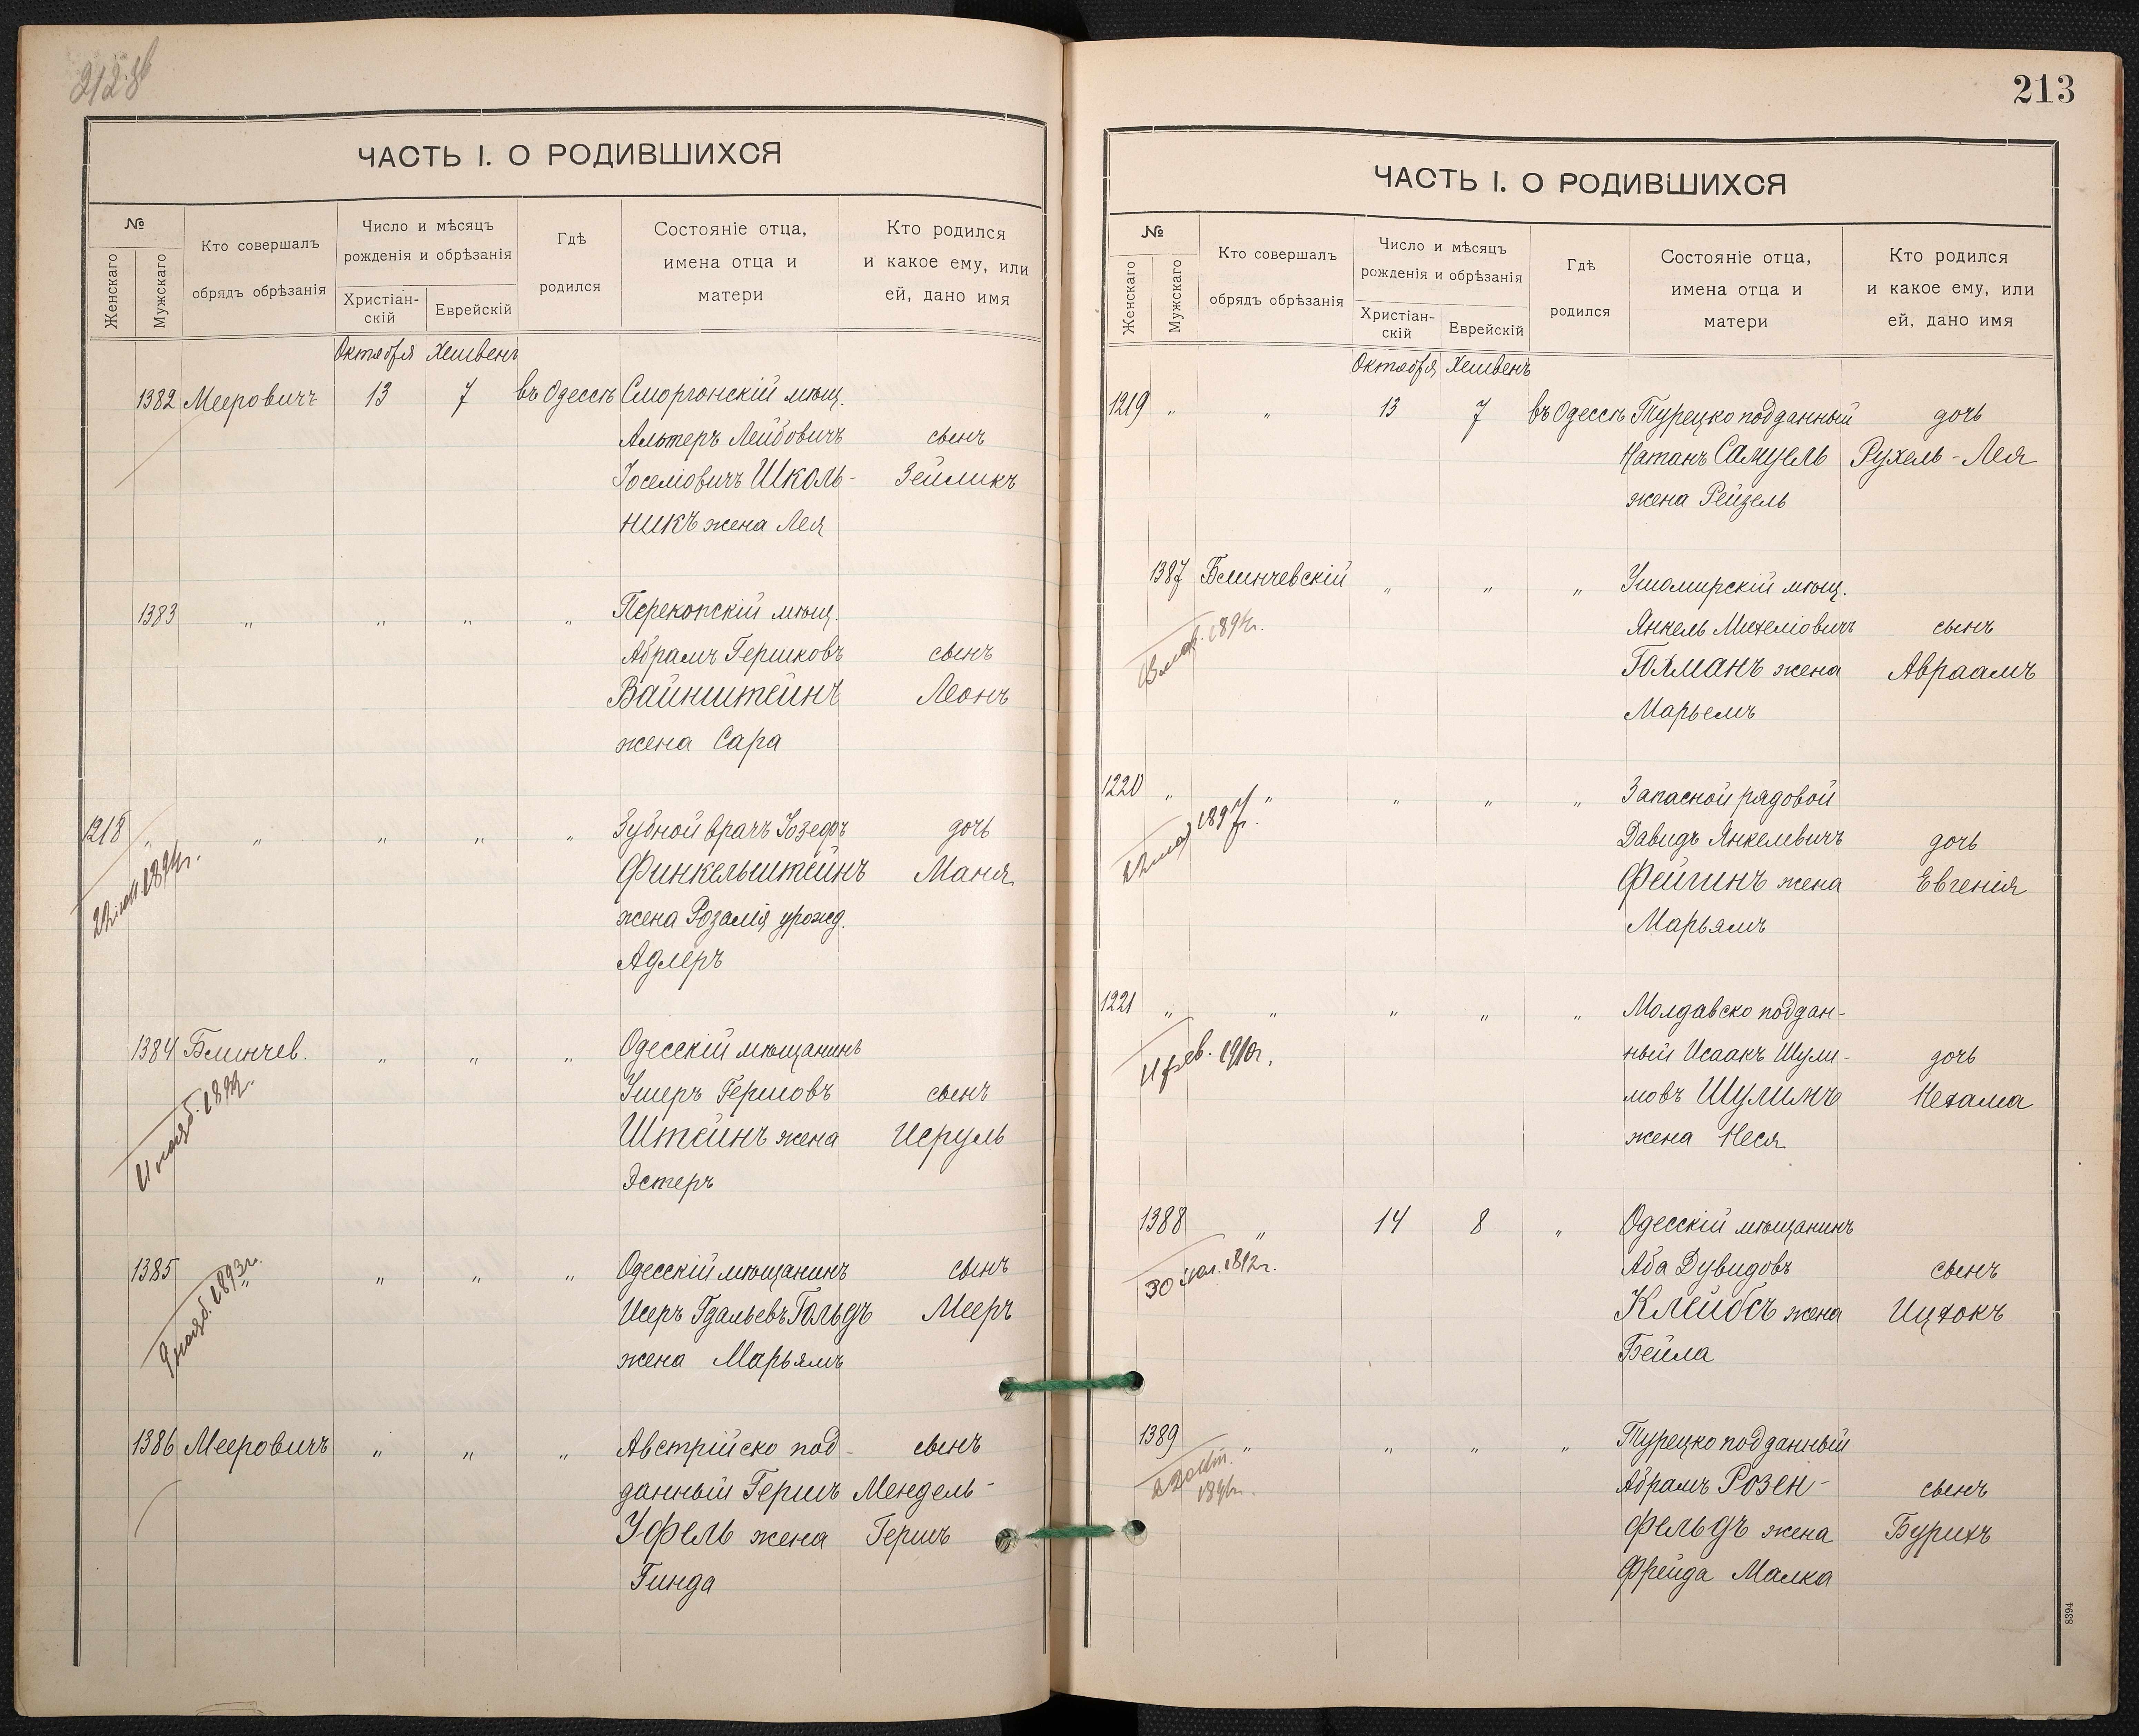 212 об
ЧАСТЬ I. О РОДИВШИХСЯ
№
Женскаго
Мужскаго
Кто совершалъ
обрядъ обрѣзанія
Число и мѣсяцъ
рожденія и обрѣзанія
Христіан-
скій
Еврейскій
Гдѣ
родился
Состояніе отца,
имена отца и
матери
Кто родился
и какое ему, или
ей, дано имя
Октября Хешвенъ
1382 Мееровичъ 13 7 въ Одессѣ Сморгонскій мѣщ.
Альтеръ Лейбовичъ сынъ
Іоселіовичъ Школь- Зейликъ
никъ жена Лея
1383 " " " " Перекопскій мѣщ.
Абрамъ Гершковъ сынъ
Вайнштейнъ Леонъ
жена Сара
1218 " " " " " Зубной врачъ Іозефъ дочь
Финкельштейнъ Маня
жена Розалія урожд.
Адлеръ
1384 Блинчев. " " " Одесскій мѣщанинъ
Ушеръ Гершовъ сынъ
Штейнъ жена Исруль
Эстеръ
1385 " " " " Одесскій мѣщанинъ сынъ
9 нояб. 1893 г.
Исеръ Гдальевъ Гольдъ Мееръ
жена Марьямъ
1386 Мееровичъ " " " Австрійско под- сынъ
данный Гершъ Мендель-
Уфель жена Гершъ
Гинда
213
ЧАСТЬ I. О РОДИВШИХСЯ
№
Женскаго
Мужскаго
Кто совершалъ
обрядъ обрѣзанія
Число и мѣсяцъ
рожденія и обрѣзанія
Христіан-
скій
Еврейскій
Гдѣ
родился
Состояніе отца,
имена отца и
матери
Кто родился
и какое ему, или
ей, дано имя
Октября Хешвенъ
1219 " " 13 7 въ Одессѣ Турецко подданный дочь
Натанъ Самуель Рухель-Лея
жена Рейзель
1387 Блинчевскій " " " Ушомирскій мѣщ.
Янкель Михеліовичъ сынъ
Гохманъ жена Авраамъ
Марьемъ
1220 " " " " " Запасной рядовой
1897 г.
Давидъ Янкелевичъ дочь
Фейгинъ жена Евгенія
Марьямъ
1221 " " " " " Молдавско поддан-
11 фев. 1910 г.
ный Исаакъ Шули- дочь
мовъ Шулимъ Нехама
жена Неся
1388 " 14 8 " Одесскій мѣщанинъ
Аба Дувидовъ сынъ
Клейбсъ жена Ицхокъ
Бейла
1389 " " " " Турецко подданный
Абрамъ Розен- сынъ
фельдъ жена Бурихъ
Фрейда Малка
8394